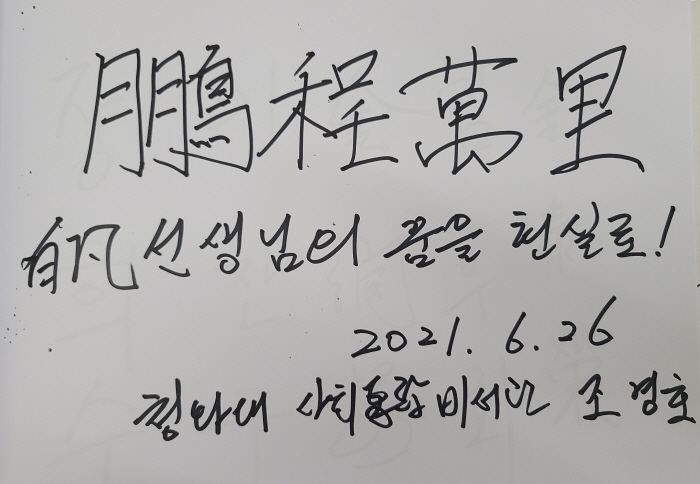 鵬程萬里
白凡선생님의 꿈을 현실로!
2021. 6. 26
청와대 사회통합비서관 조경호